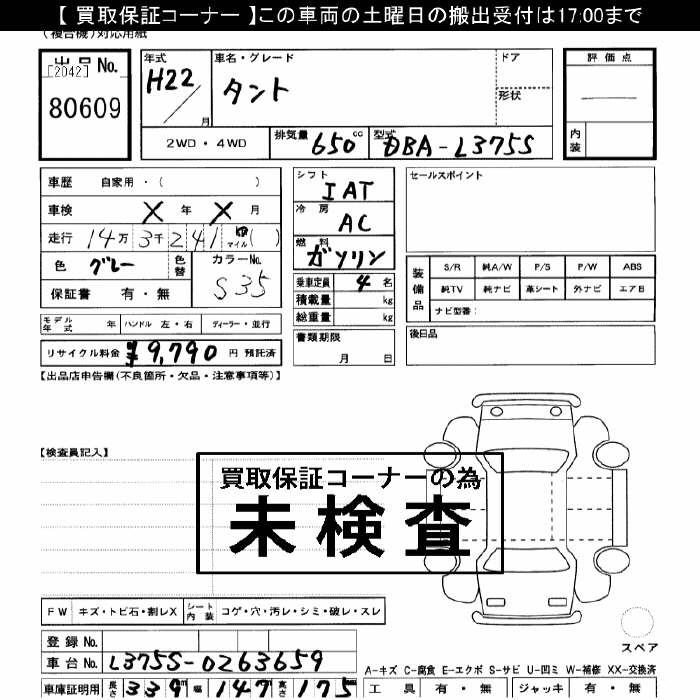 【 買取保証コーナー 】この車両の土曜日の搬出受付は17:00まで
(複合機)対応用紙
出品 No.
[2042]
80609
年式
H22
月
車名・グレード
タント
ドア
形状
評価点
内装
2WD ・ 4WD
排気量 650 cc
型式 DBA-L375S
車歴 自家用・( )
車検 X 年 X 月
走行 14万 3千 2 4 1 マイル ( )
色 グレー
色替
カラーNo.
S35
保証書 有・無
シフト
IAT
冷房
AC
燃料
ガソリン
乗車定員 4 名
積載量 kg
総重量 kg
書類期限
月 日
セールスポイント
装備品
S/R 純A/W P/S P/W ABS
純TV 純ナビ 革シート 外ナビ エアB
ナビ型番:
後日品
モデル年式 年 ハンドル 左・右 ディーラー・並行
リサイクル料金 ¥9,790 円 預託済
【出品店申告欄(不良箇所・欠品・注意事項等)】
【検査員記入】
買取保証コーナーの為
未検査
FW キズ・トビ石・割レX シート内装 コゲ・穴・汚レ・シミ・破レ・スレ
登録 No.
車台No. L375S-0263659
車庫証明用 長さ 339m 幅 147 高さ 175
スペア
A-キズ C-腐食 E-エクボ S-サビ U-凹ミ W-補修 XX-交換済
工具 有・無 ジャッキ 有・無